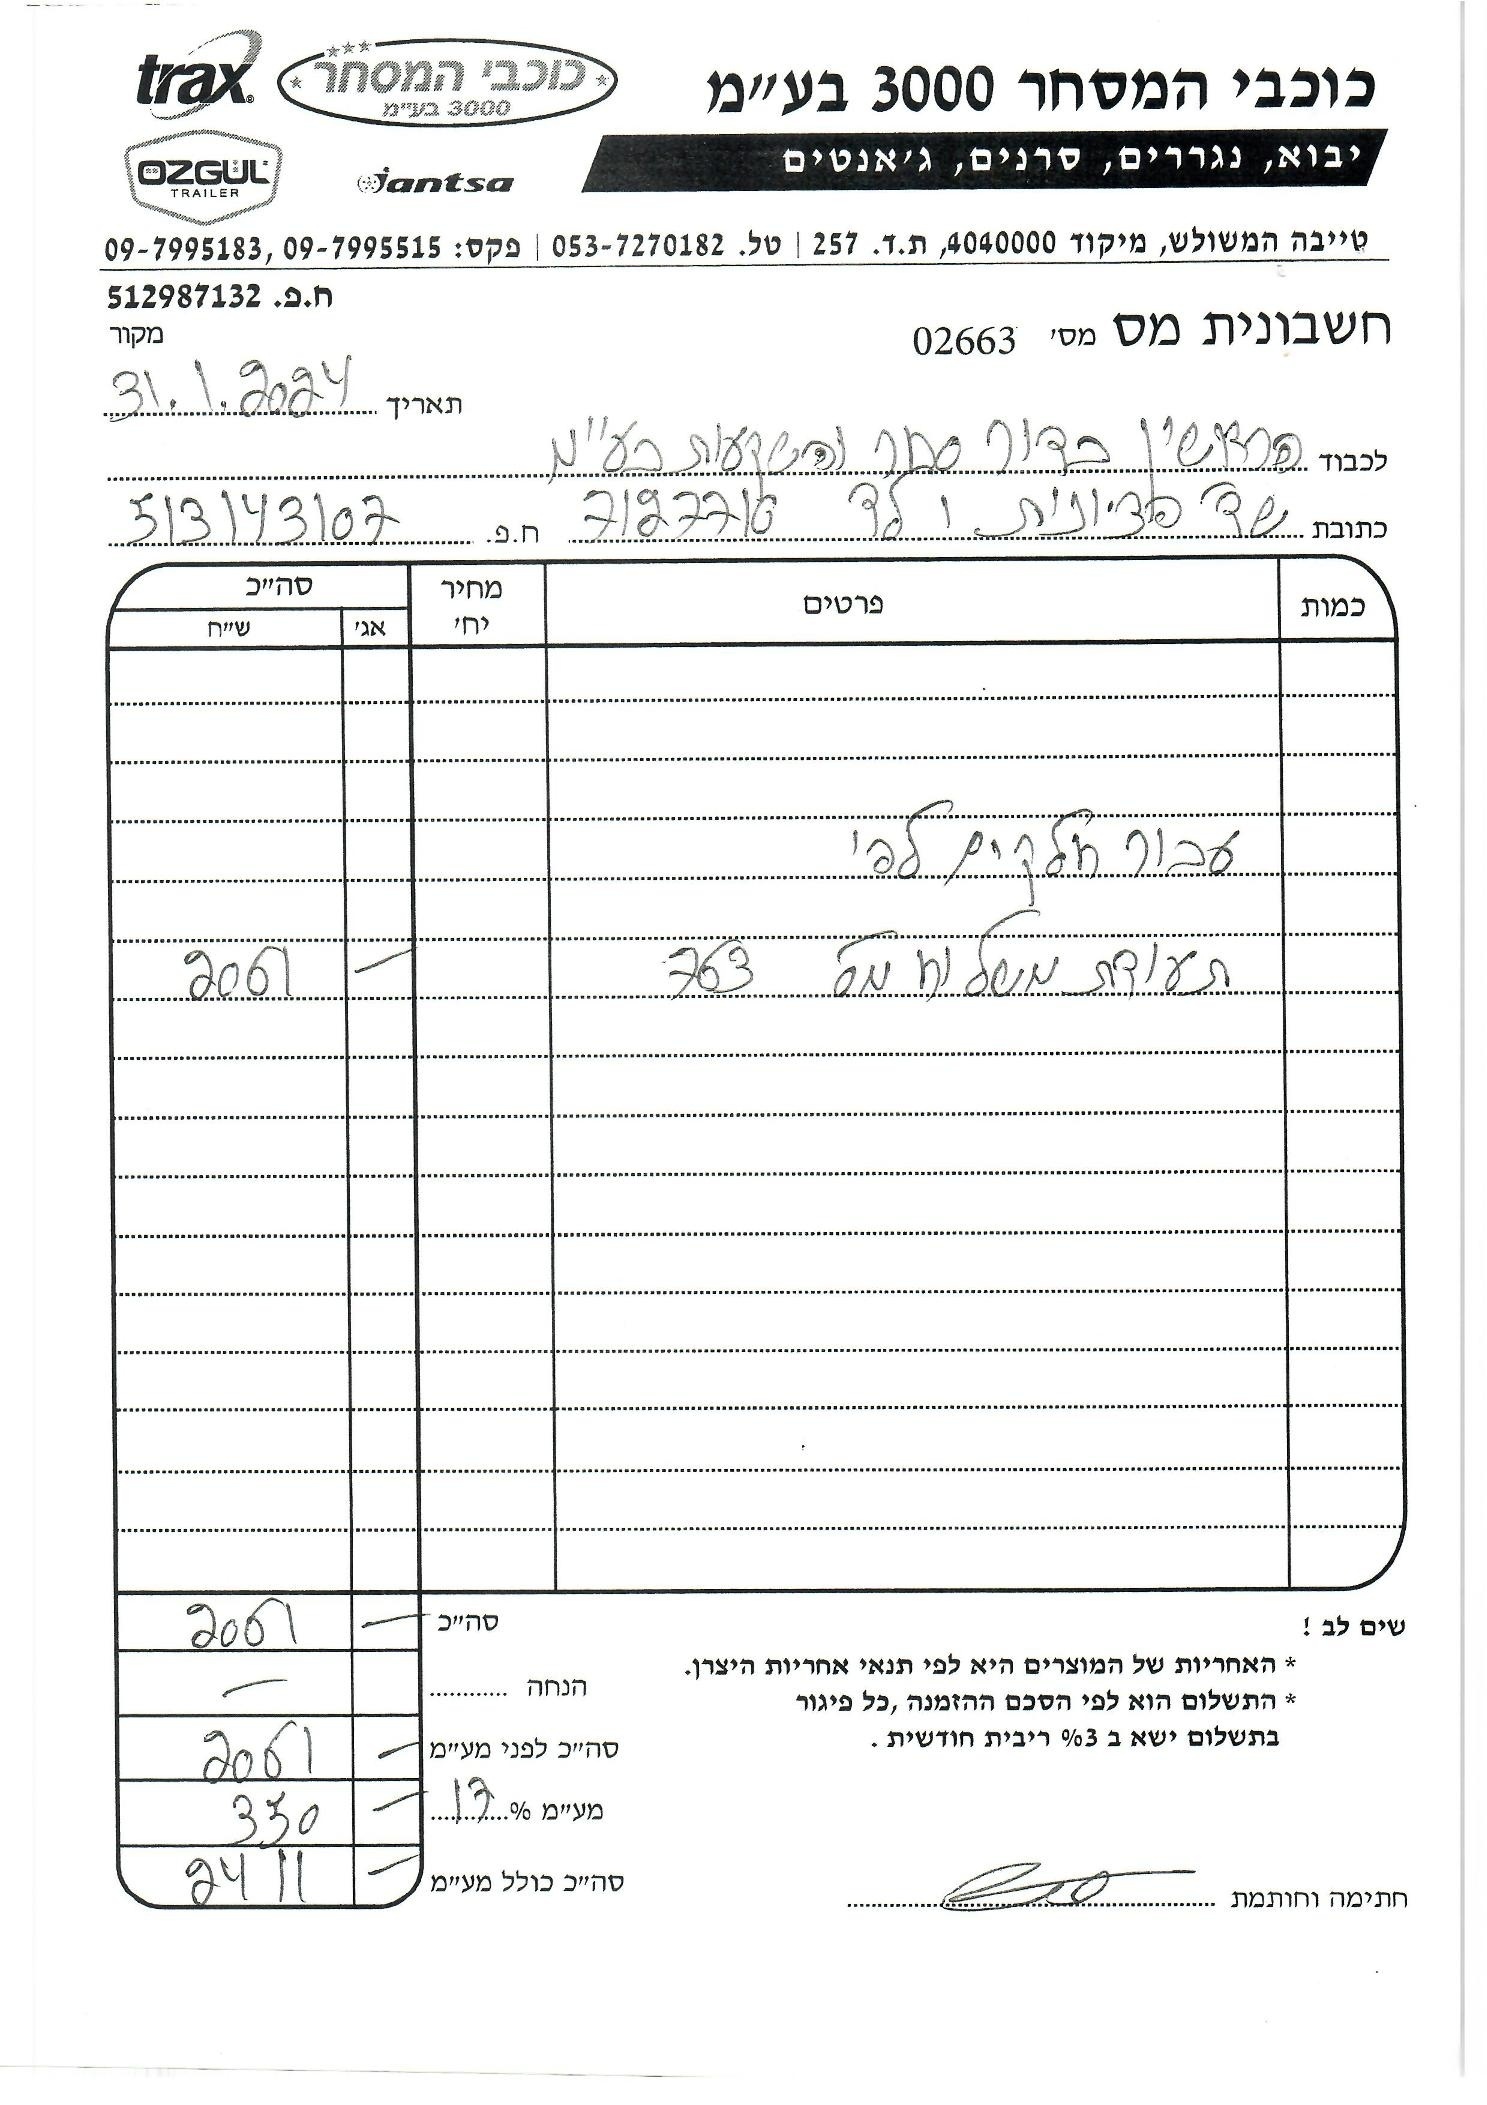 trax
כוכבי המסחר
3000 בע״מ
OZGÜL
TRAILER
jantsa
כוכבי המסחר 3000 בע״מ
יבוא, נגררים, סרנים, ג׳אנטים
טייבה המשולש, מיקוד 4040000, ת.ד. 257 | טל. 053-7270182 | פקס: 09-7995515, 09-7995183
ח.פ. 512987132
חשבונית מס מס׳ 02663
מקור
תאריך 31.1.2024
לכבוד סחר והשקעות בע"מ
כתובת שד' ח.פ. 513143107
כמות פרטים מחיר יח׳ סה״כ
אג׳ ש״ח
עבור חלקים לפי
תעודת משלוח מס 763 — 2061
סה״כ — 2061
הנחה .......... —
סה״כ לפני מע״מ — 2061
מע״מ % 17 — 350
סה״כ כולל מע״מ — 2411
שים לב !
* האחריות של המוצרים היא לפי תנאי אחריות היצרן.
* התשלום הוא לפי הסכם ההזמנה ,כל פיגור
בתשלום ישא ב 3% ריבית חודשית .
חתימה וחותמת